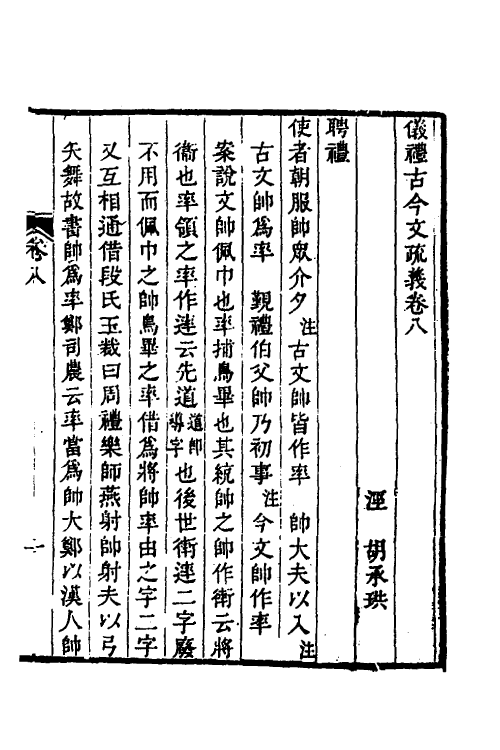 儀禮古今文疏義卷八
涇　胡承珙
聘禮
使者朝服帥眾介夕注古文帥皆作率　帥大夫以入注
古文帥為率　覲禮伯父帥乃初事注今文帥作率
案說文帥佩巾也率捕鳥畢也其統帥之帥作𧗿云將
𧗿也率領之率作𨘃云先道道即導字也後世𧗿𨘃二字廢
不用而佩巾之帥鳥畢之率借為將帥率由之字二字
又互相通借段氏玉裁曰周禮樂師燕射帥射夫以弓
矢舞故書帥為率鄭司農云率當為帥大鄭以漢人帥
卷八
一